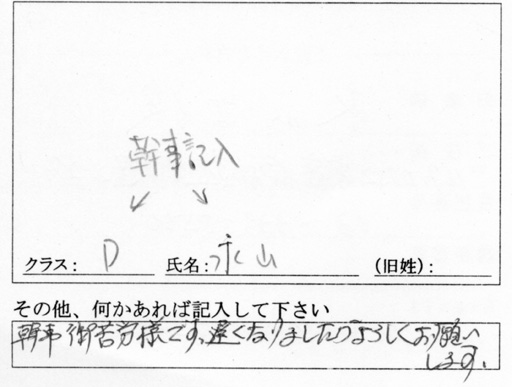 幹事記入
クラス: D 氏名: 永山 (旧姓):
その他、何かあれば記入して下さい
幹事御苦労様です、遅くなりましたがよろしくお願い
します。